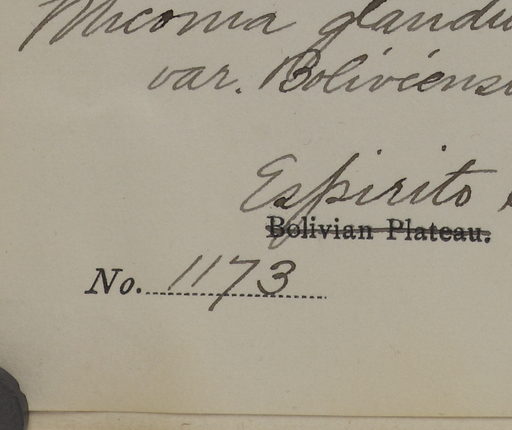 Miconia glandu
var. Boliviensi
Espirito
Bolivian Plateau.
No. 1173